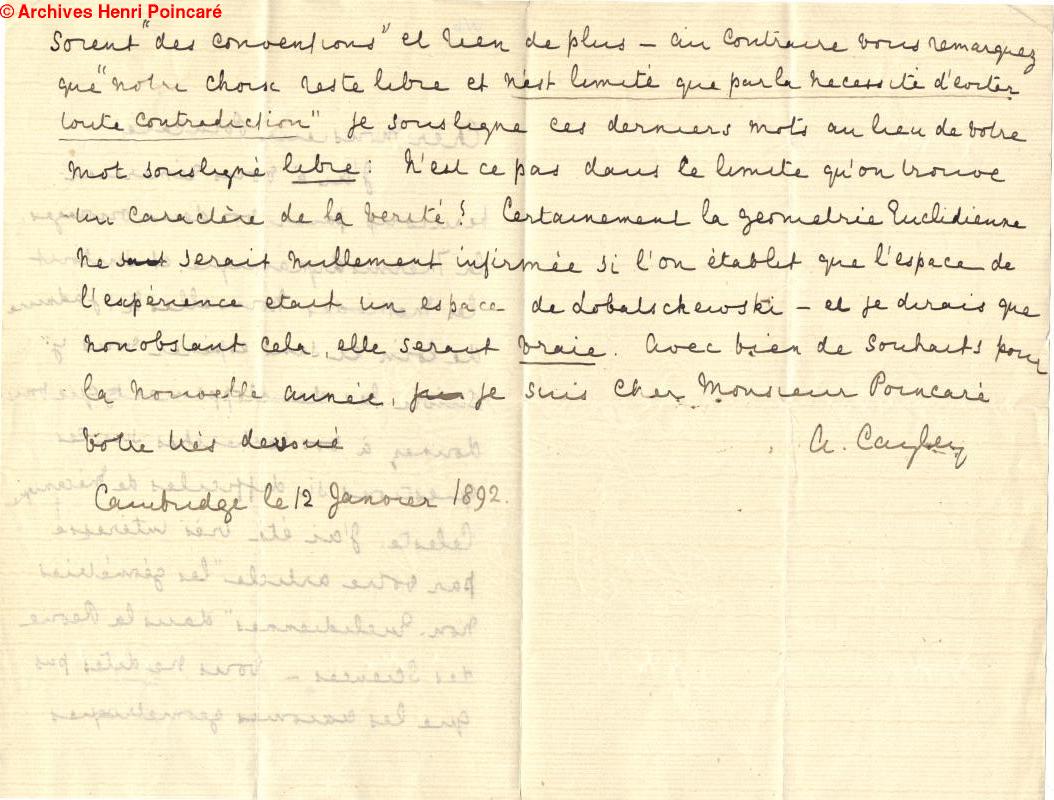 © Archives Henri Poincaré
soient "des conventions" et rien de plus – au contraire vous remarquez
que "notre choix reste libre et n'est limité que par la necessité d'eviter
toute contradiction" je souligne ces derniers mots au lieu de votre
mot souligné libre: N'est ce pas dans le limite qu'on trouve
un caractère de la verité? Certainement la geometrie Euclidienne
ne serait nullement infirmée si l'on établet que l'espace de
l'expérience etait un espace de Lobatschewski – et je dirais que
nonobstant cela, elle serait vraie. Avec bien de souhaits pour
la nouvelle année, je suis cher Monsieur Poincaré
votre très devoué A. Cayley
Cambridge le 12 Janvier 1892.
Celeste. J'ai été très intéressé
par votre article "les géométries
non-Euclidiennes" dans la Revue
des Sciences – Vous ne dites pas
que les axiomes geometriques